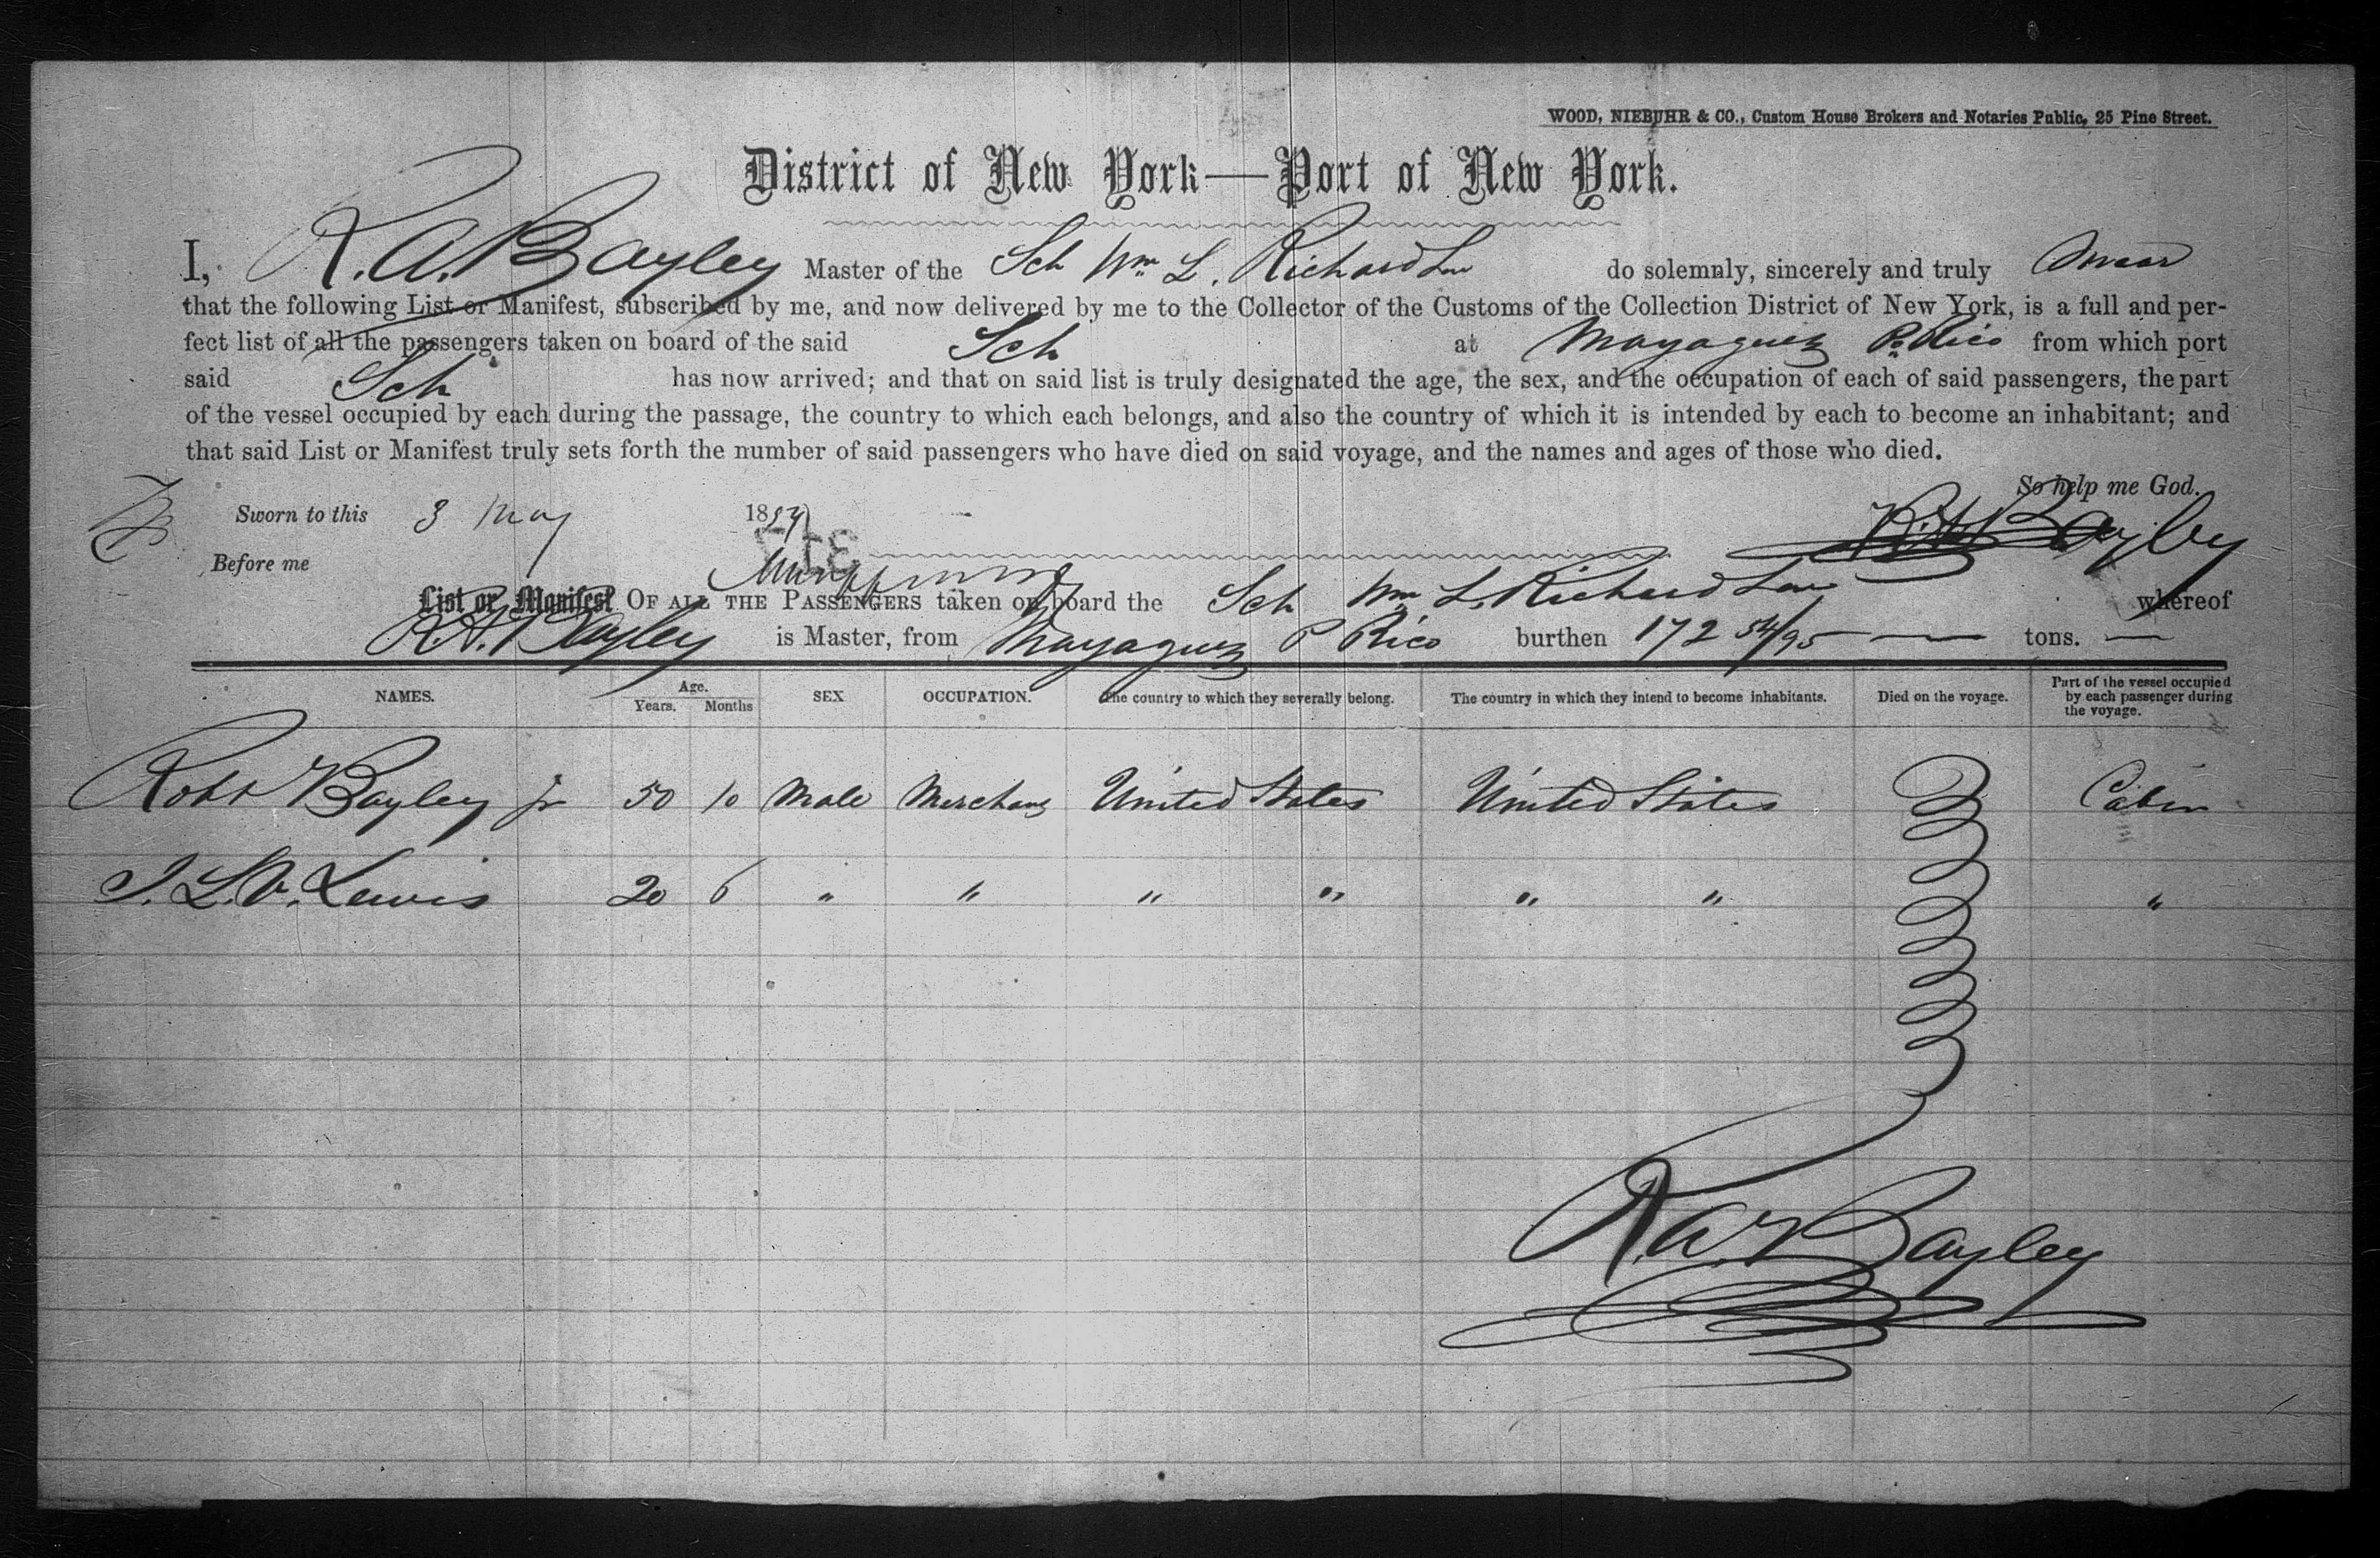 WOOD, NIEBUHR & CO., Custom House Brokers and Notaries Public, 25 Pine Street.
District of New York—Port of New York.
I, R. A. Bayley Master of the Sch Wm L. Richardson do solemnly, sincerely and truly swear
that the following List or Manifest, subscribed by me, and now delivered by me to the Collector of the Customs of the Collection District of New York, is a full and per-
fect list of all the passengers taken on board of the said Sch at Mayaguez Po Rico from which port
said Sch has now arrived; and that on said list is truly designated the age, the sex, and the occupation of each of said passengers, the part
of the vessel occupied by each during the passage, the country to which each belongs, and also the country of which it is intended by each to become an inhabitant; and
that said List or Manifest truly sets forth the number of said passengers who have died on said voyage, and the names and ages of those who died.
So help me God.
Sworn to this 3 May 18
R. A. Bayley
Before me
List or Manifest OF ALL THE PASSENGERS taken on board the Sch Wm L. Richardson whereof
R. A. Bayley is Master, from Mayaguez P Rico burthen 172 54/95 tons.
NAMES. Age. Years. Months SEX OCCUPATION. The country to which they severally belong. The country in which they intend to become inhabitants. Died on the voyage. Part of the vessel occupied by each passenger during the voyage.
Robt Bayley jr 50 10 Male Merchant United States United States Cabin
L. Lewis 20 6 " " " " " " "
R. A. Bayley